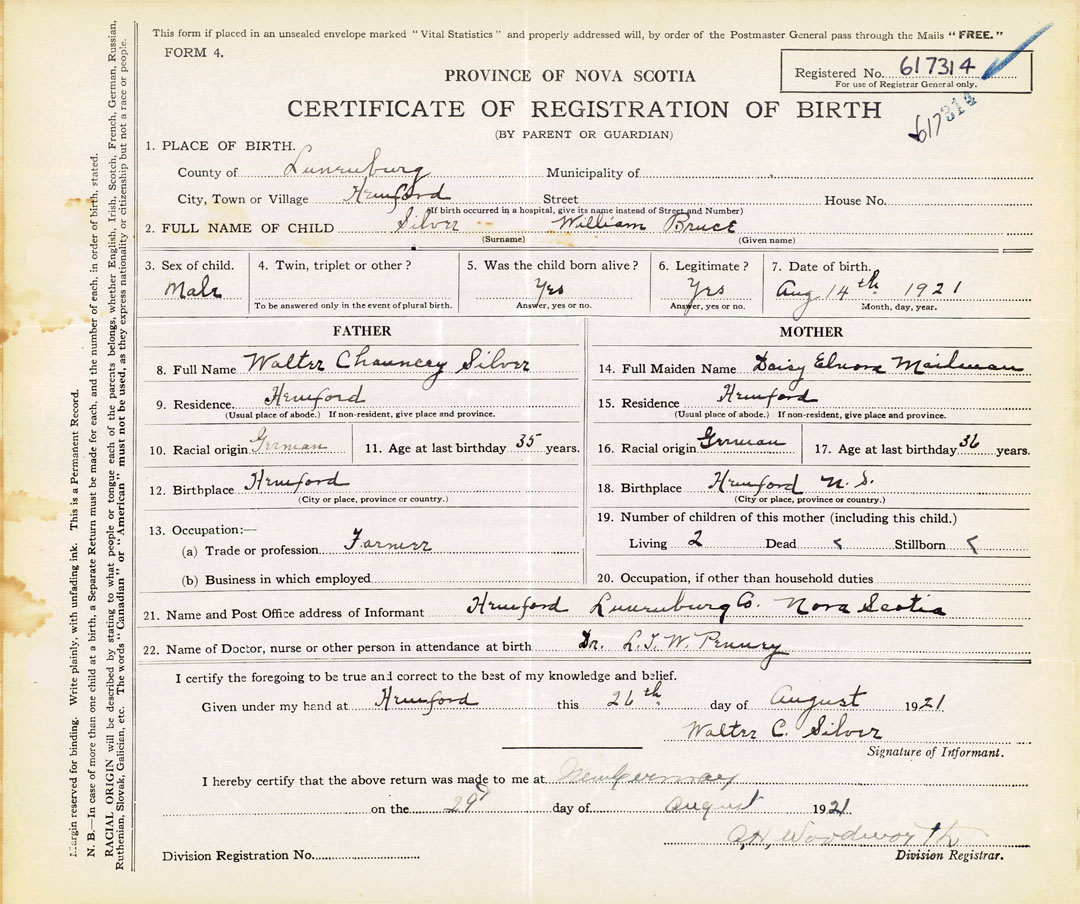 This form if placed in an unsealed envelope marked "Vital Statistics" and properly addressed will, by order of the Postmaster General pass through the Mails "FREE."
FORM 4.
Registered No. 617314
For use of Registrar General only.
617314
PROVINCE OF NOVA SCOTIA
CERTIFICATE OF REGISTRATION OF BIRTH
(BY PARENT OR GUARDIAN)
1. PLACE OF BIRTH.
County of Lunenburg Municipality of
City, Town or Village Hemford Street House No.
(If birth occurred in a hospital, give its name instead of Street and Number)
2. FULL NAME OF CHILD Silver William Bruce
(Surname) (Given name)
3. Sex of child. 4. Twin, triplet or other? 5. Was the child born alive? 6. Legitimate? 7. Date of birth.
Male Yes Yes Aug. 14th 1921
To be answered only in the event of plural birth. Answer, yes or no. Answer, yes or no. Month, day, year.
FATHER
8. Full Name Walter Chauncey Silver
9. Residence. Hemford
(Usual place of abode.) If non-resident, give place and province.
10. Racial origin German 11. Age at last birthday 35 years.
12. Birthplace Hemford
(City or place, province or country.)
13. Occupation:—
(a) Trade or profession. Farmer
(b) Business in which employed
MOTHER
14. Full Maiden Name Daisy Elnora Mailman
15. Residence Hemford
(Usual place of abode.) If non-resident, give place and province.
16. Racial origin German 17. Age at last birthday 36 years.
18. Birthplace Hemford N.S.
(City or place, province or country.)
19. Number of children of this mother (including this child.)
Living 2 Dead < Stillborn <
20. Occupation, if other than household duties
21. Name and Post Office address of Informant Hemford Lunenburg Co. Nova Scotia
22. Name of Doctor, nurse or other person in attendance at birth Dr. L.T.W. Penney
I certify the foregoing to be true and correct to the best of my knowledge and belief.
Given under my hand at Hemford this 26th day of August 1921
Walter C. Silver
Signature of Informant.
I hereby certify that the above return was made to me at New Germany
on the 29th day of August 1921
Woodworth
Division Registrar.
Division Registration No.
Margin reserved for binding. Write plainly, with unfading ink. This is a Permanent Record.
N. B.—In case of more than one child at a birth, a Separate Return must be made for each, and the number of each, in order of birth, stated.
RACIAL ORIGIN will be described by stating to what people or tongue each of the parents belongs, whether English, Irish, Scotch, French, German, Russian,
Ruthenian, Slovak, Galician, etc. The words "Canadian" or "American" must not be used, as they express nationality or citizenship but not a race or people.